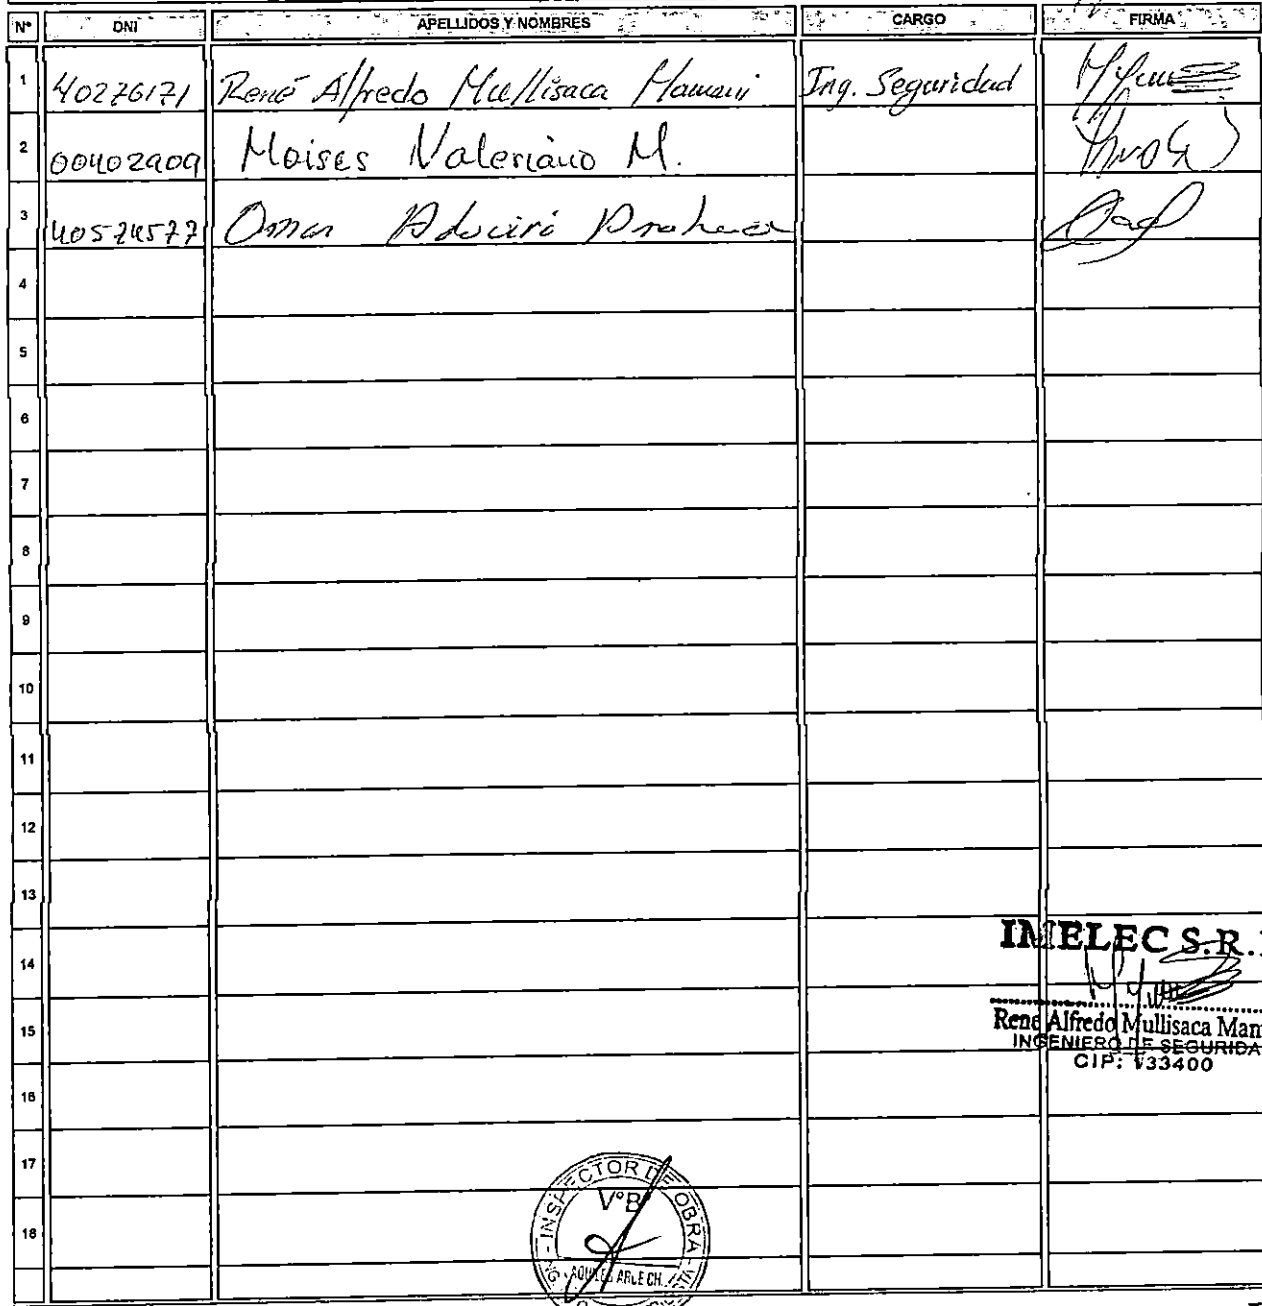 N° DNI APELLIDOS Y NOMBRES CARGO FIRMA
1 40276171 René Alfredo Mullisaca Mamani Ing. Seguridad
2 00402909 Moises Valeriano M.
3 40574577 Omar
4
5
6
7
8
9
10
11
12
13
14
15
16
17
18
IMELEC S.R.
Rene Alfredo Mullisaca Mam
INGENIERO DE SEGURIDA
CIP: 133400
INSPECTOR DE OBRA
V°B°
AQUILES ARCE CH.